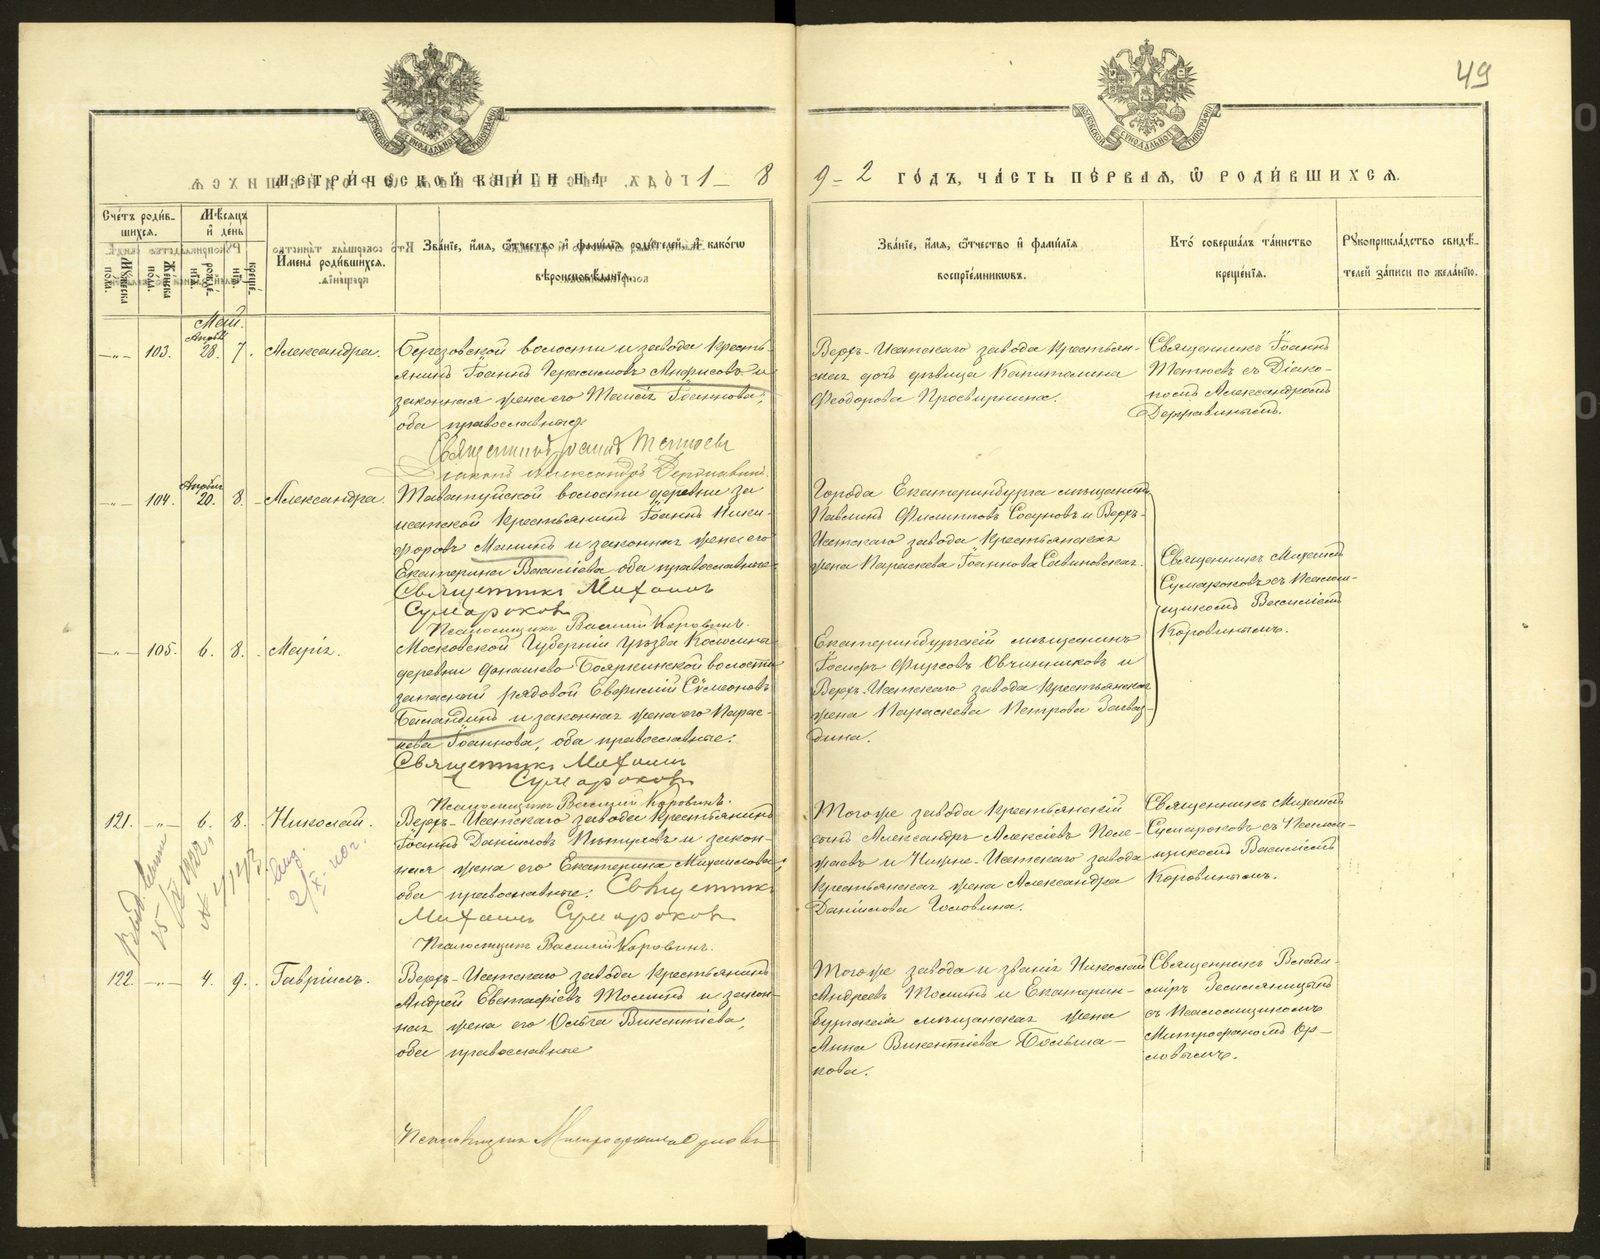 49
МЕТРИ́ЧЕСКОЙ КНИ́ГИ НА 1 – 8
9 = 2 ГО́ДЪ, ЧА́СТЬ ПЕ́РВАЯ, Ѡ РОДИ́ВШИХСЯ.
Сче́тъ роди́в-
шихся.
Му́жеска пола.
Же́нска пол.
Мѣ́сяцъ
и҆ де́нь
рожде́нїя.
креще́нїя.
И҆мена̀ роди́вшихся.
Зва́нїе, и҆́мя, ѻ҆́тчество и҆ фами́лїѧ роди́телей, и҆ како́гѡ
вѣроисповѣ́данїѧ.
Зва́нїе, и҆́мя, ѻ҆́тчество и҆ фами́лїѧ
воспрїе́мниковъ.
Кто́ соверша́лъ та́инство
креще́нїѧ.
Рꙋкоприкла́дство свидѣ́-
телей за́писи по жела́нїю.
Май.
Апрѣл
103. 28. 7. Александра.
Березовской волости и завода кресть-
янинъ Іоаннъ Герасимовъ и
законная жена его Іоаннова,
оба православные
Священникъ Іоаннъ Тетюевъ
Діаконъ Александръ Державинъ.
Верхъ-Исетскаго завода крестьян-
ская дочь дѣвица Капитолина
Феодорова Просвирнина.
Священникъ Іоаннъ
Тетюевъ съ Діако-
номъ Александромъ
Державинымъ.
Апрѣля
104. 20. 8. Александра.
Таватуйской волости деревни за
исетской крестьянинъ Іоаннъ Ники-
форовъ Манинъ и законная жена его
Екатерина Васильева оба православные
Священникъ Михаилъ
Сумароковъ
Псаломщикъ Василій Коровинъ.
Города Екатеринбурга мѣщанинъ
Павлинъ Филипповъ Сосуновъ и Верхъ-
Исетскаго завода крестьянская
жена Параскева Іоаннова Савиновская.
Священникъ Михаилъ
Сумароковъ съ Псалом-
щикомъ Василіемъ
Коровинымъ.
105. 6. 8. Марія.
Московской Губерніи уѣзда Коломна
деревни Бояркинской волости
запасный рядовой Евфимій Сѵмеоновъ
и законная жена его Парас-
кева Іоаннова, оба православные.
Священникъ Михаилъ
Сумароковъ
Псаломщикъ Василій Коровинъ.
Екатеринбургскій мѣщанинъ
Іосифъ Фирсовъ Овчинниковъ и
Верхъ-Исетскаго завода крестьянская
жена Параскева Петрова Загвоз-
дина.
121. 6. 8. Николай.
Верхъ-Исетскаго завода крестьянинъ
Іоаннъ Даниловъ и закон-
ная жена его Екатерина Михаилова,
оба православные. Священникъ
Михаилъ Сумароковъ
Псаломщикъ Василій Коровинъ.
Тогоже завода крестьянскій
сынъ Александръ Алексіевъ Поле-
жаевъ и Нижне-Исетскаго завода
крестьянская жена Александра
Данилова Головина.
Священникъ Михаилъ
Сумароковъ съ Псалом-
щикомъ Василіемъ
Коровинымъ.
15/IX 1922 г.
122. 4. 9. Гавріилъ.
Верхъ-Исетскаго завода крестьянинъ
Андрей Евстафіевъ Толминъ и закон-
ная жена его Ольга Викентіева,
оба православные
Псаломщикъ Митрофанъ Орловъ
Тогоже завода и званія Николай
Андреевъ Толминъ и Екатерин-
бургскія мѣщанская жена
Анна Викентіева Больша-
кова.
Священникъ Влади-
міръ Земляницынъ
съ Псаломщикомъ
Митрофаномъ Ор-
ловымъ.